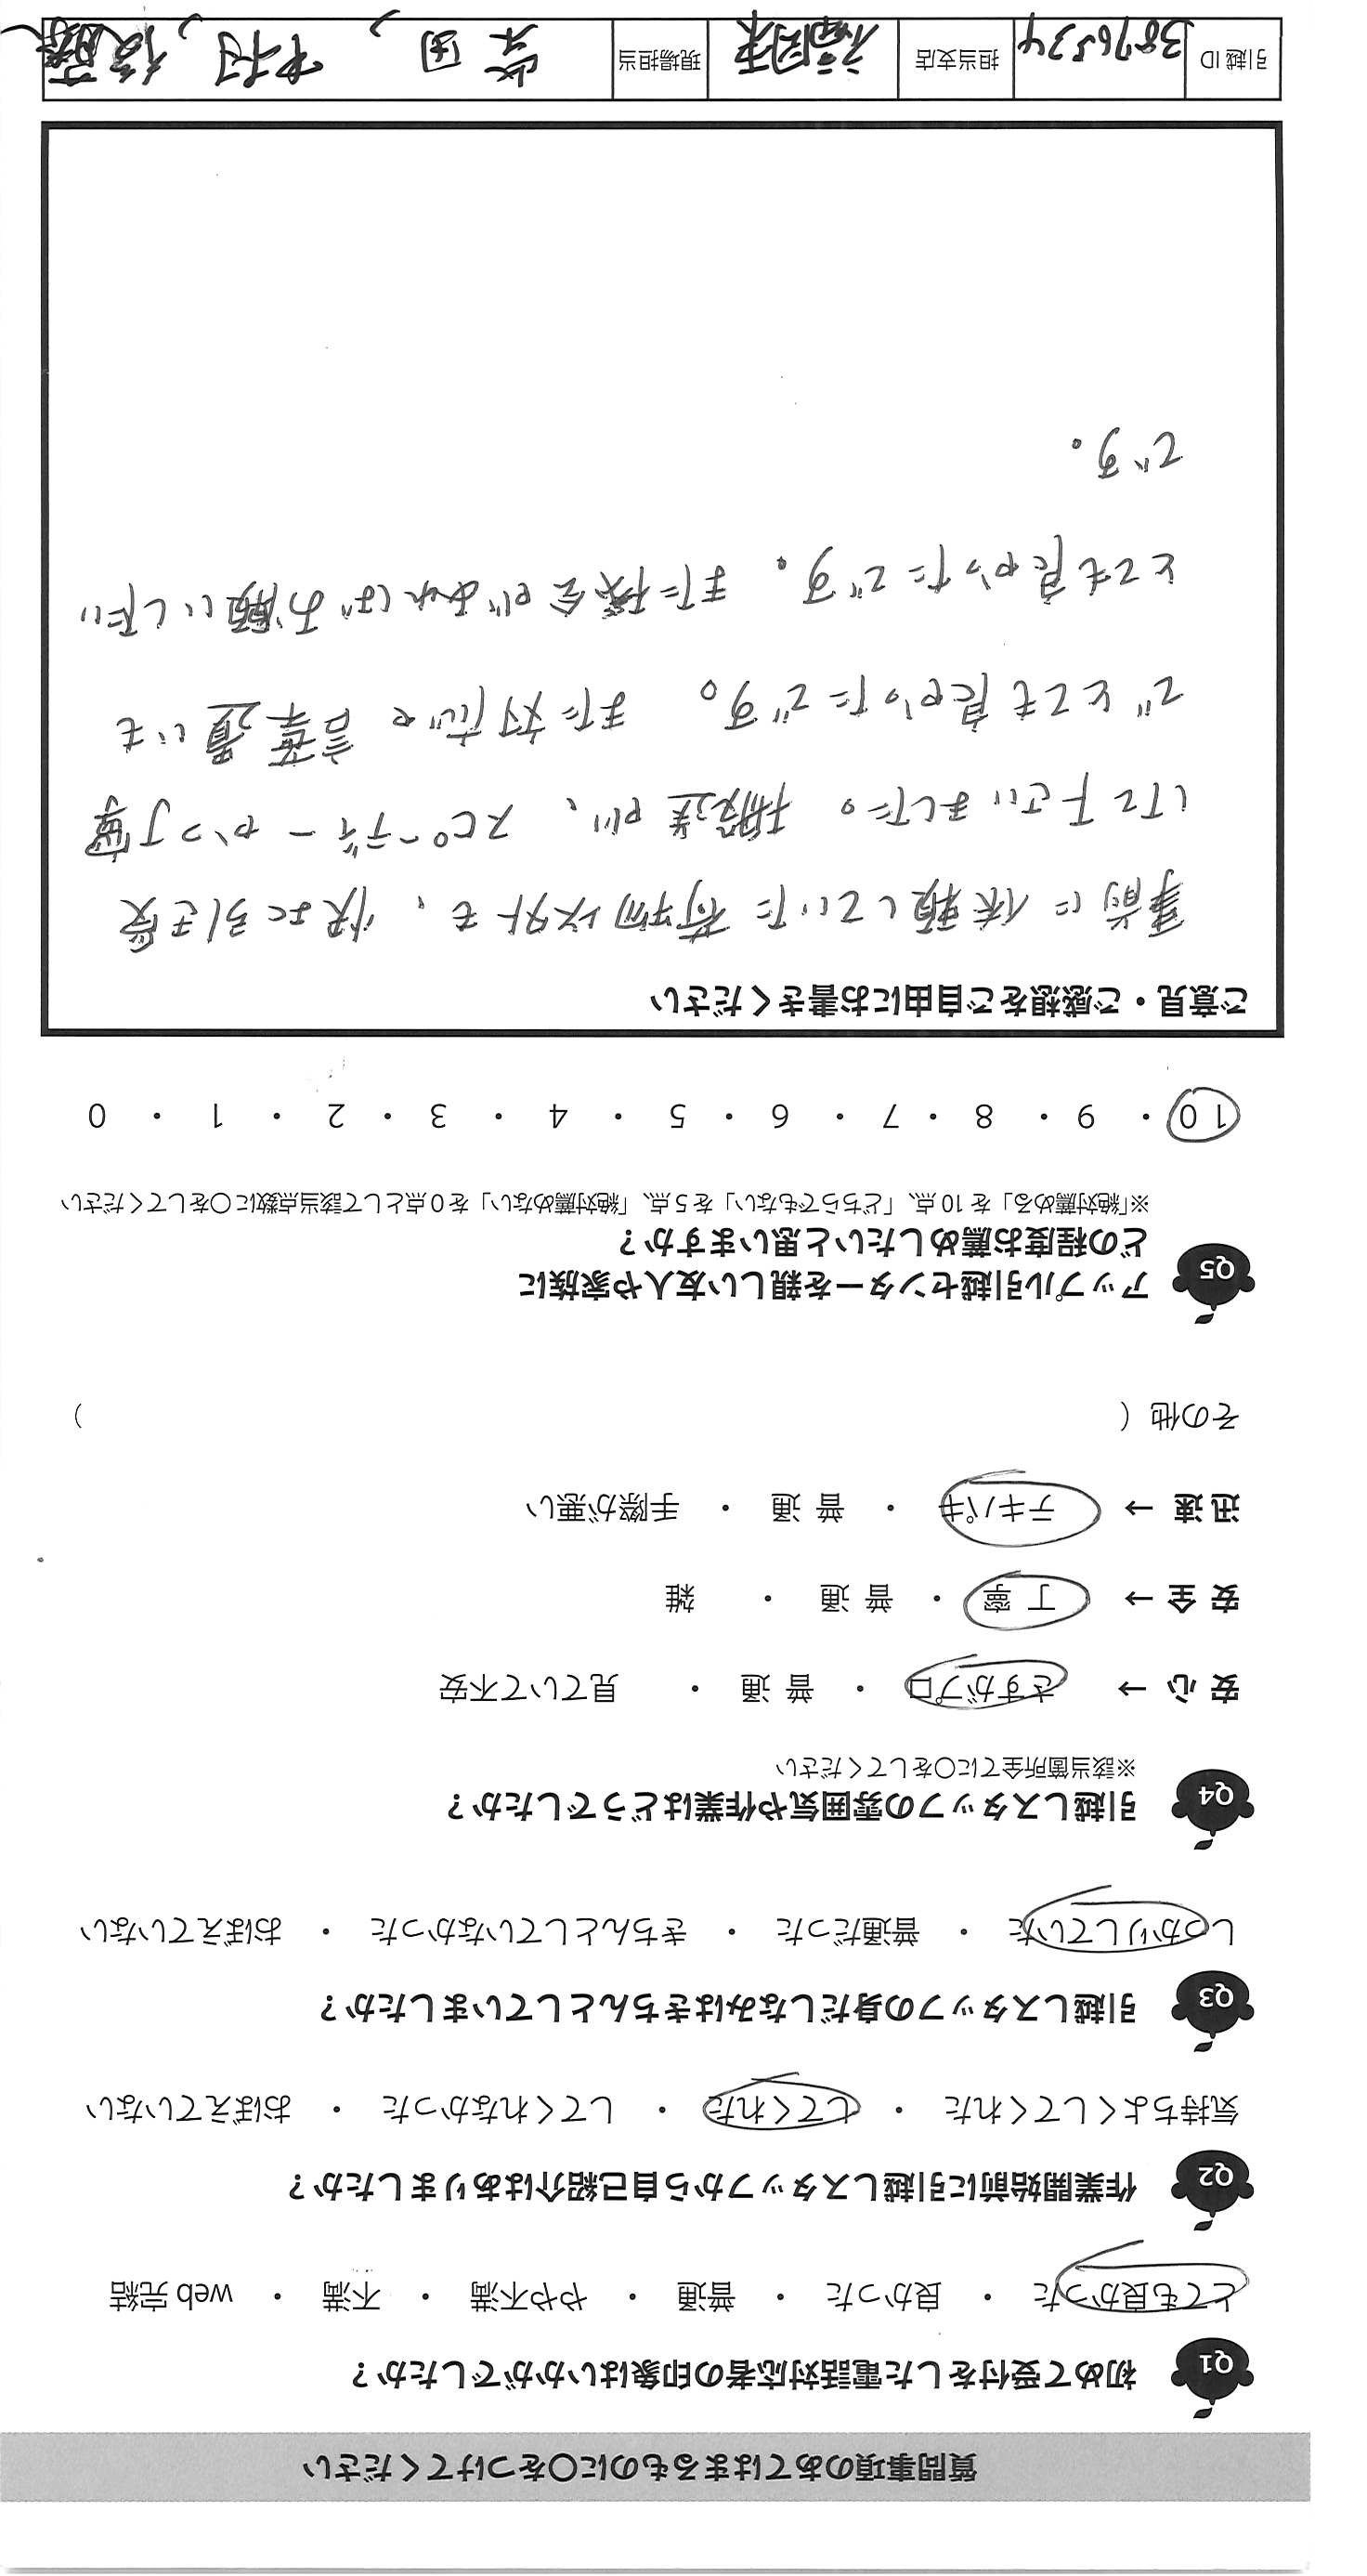 質問事項のあてはまるものに○をつけてください
Q1 初めて受付をした電話対応者の印象はいかがでしたか？
とても良かった ・ 良かった ・ 普通 ・ やや不満 ・ 不満 ・ web 完結
Q2 作業開始前に引越しスタッフから自己紹介はありましたか？
気持ちよくしてくれた ・ してくれた ・ してくれなかった ・ おぼえていない
Q3 引越しスタッフの身だしなみはきちんとしていましたか？
しっかりしていた ・ 普通だった ・ きちんとしていなかった ・ おぼえていない
Q4 引越しスタッフの雰囲気や作業はどうでしたか？
※該当箇所全てに○をしてください
安心 → さすがプロ ・ 普通 ・ 見ていて不安
安全 → 丁寧 ・ 普通 ・ 雑
迅速 → テキパキ ・ 普通 ・ 手際が悪い
その他（ ）
Q5 アップル引越センターを親しい友人や家族に
どの程度お薦めしたいと思いますか？
※「絶対薦める」を 10 点、「どちらでもない」を 5 点、「絶対薦めない」を 0 点として該当点数に○をしてください
10 ・ 9 ・ 8 ・ 7 ・ 6 ・ 5 ・ 4 ・ 3 ・ 2 ・ 1 ・ 0
ご意見・ご感想をご自由にお書きください
事前に依頼していた荷物以外も、快よく引き受
けて下さいました。搬送が、スピーディーかつ丁寧
でとても良かったです。また対応や言葉遣いも
とても良かったです。また機会があればお願いしたい
です。
引越 ID 3876534 担当支店 福岡東 現場担当 柴田、中村、後藤